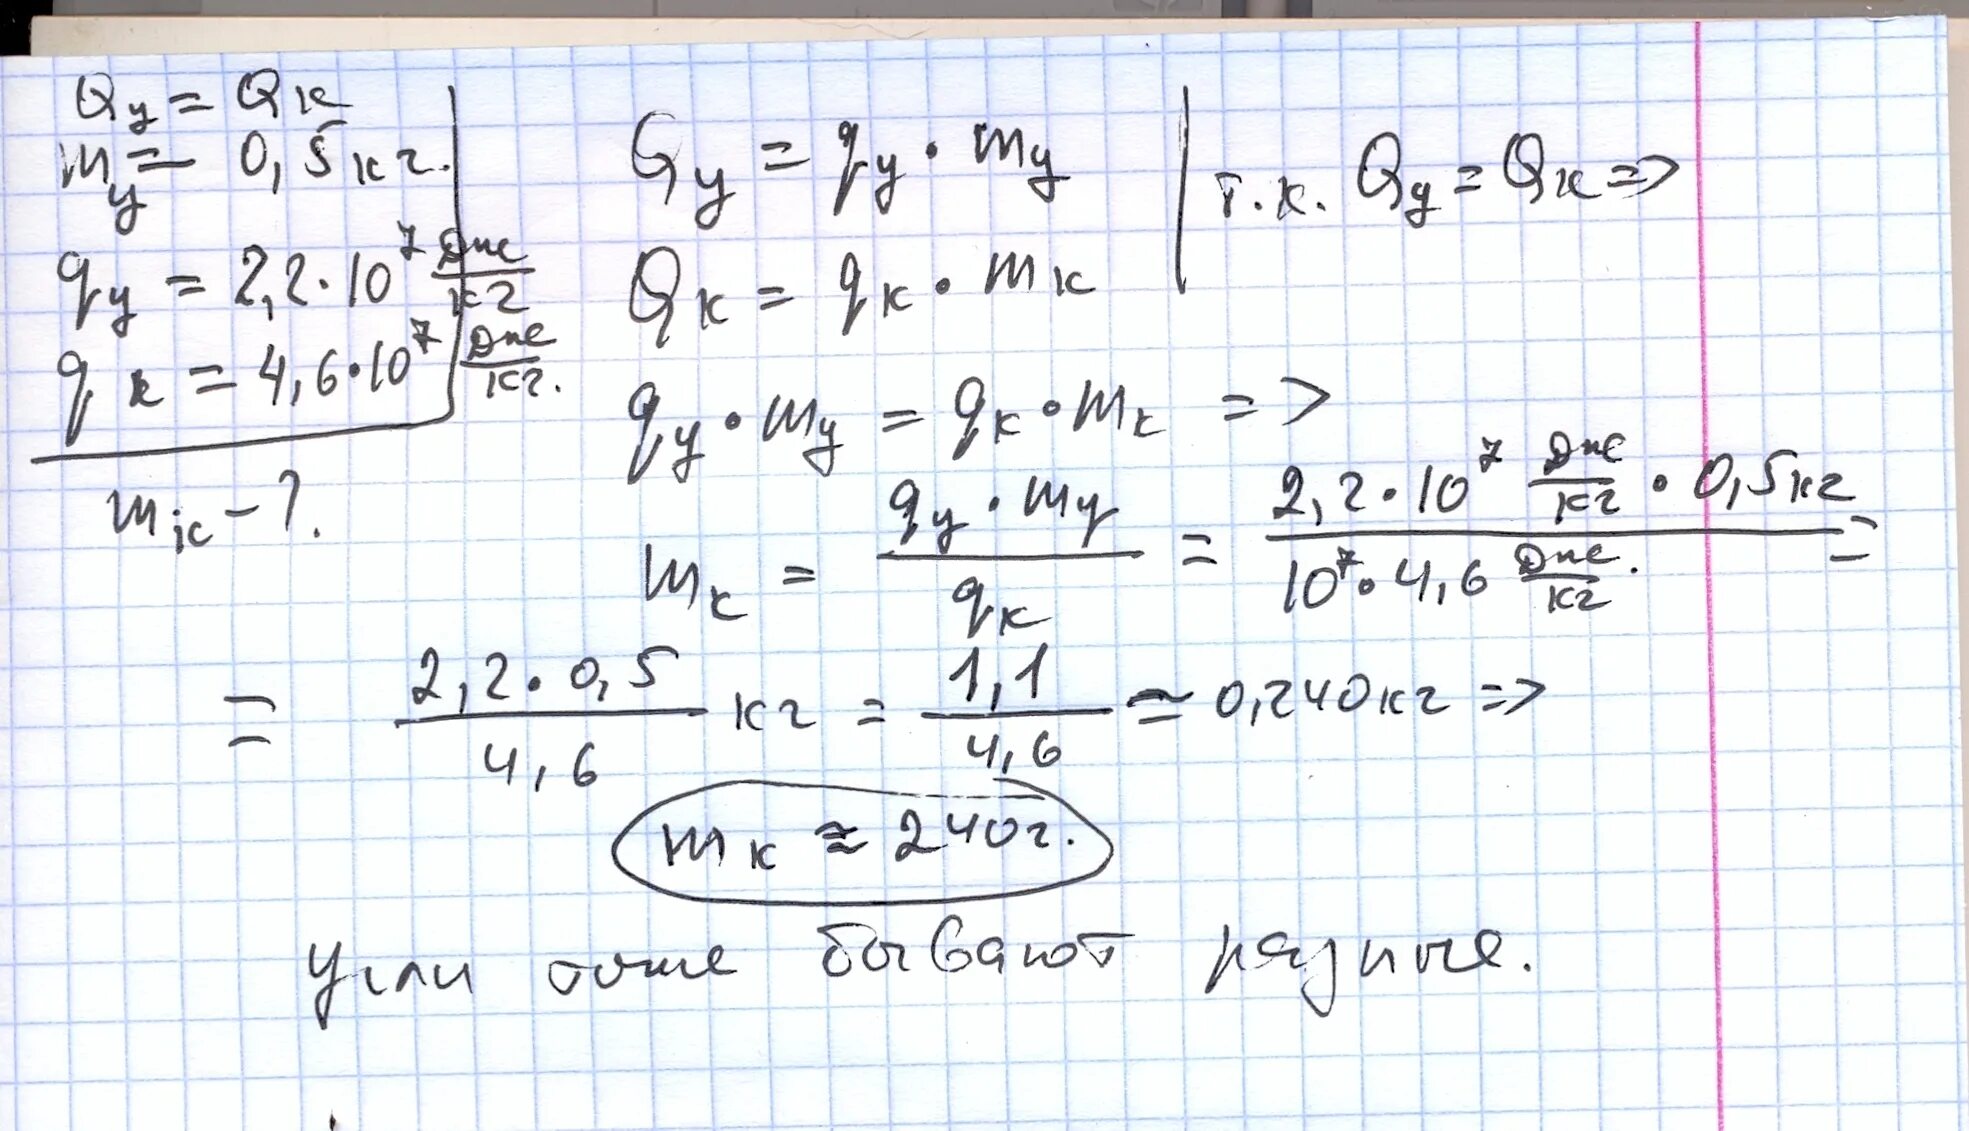 Qу = Qк
mу = 0,5 кг.
qу = 2,2·10⁷ Дж/кг
qк = 4,6·10⁷ Дж/кг.
mк - ?.
Qу = qу · mу
Qк = qк · mк
т.к. Qу = Qк =>
qу · mу = qк · mк =>
mк = qу · mу / qк = 2,2·10⁷ Дж/кг · 0,5 кг / 10⁷·4,6 Дж/кг. =
= 2,2·0,5 / 4,6 кг = 1,1 / 4,6 ≃ 0,240 кг =>
mк ≈ 240 г.
Угли тоже бывают разные.